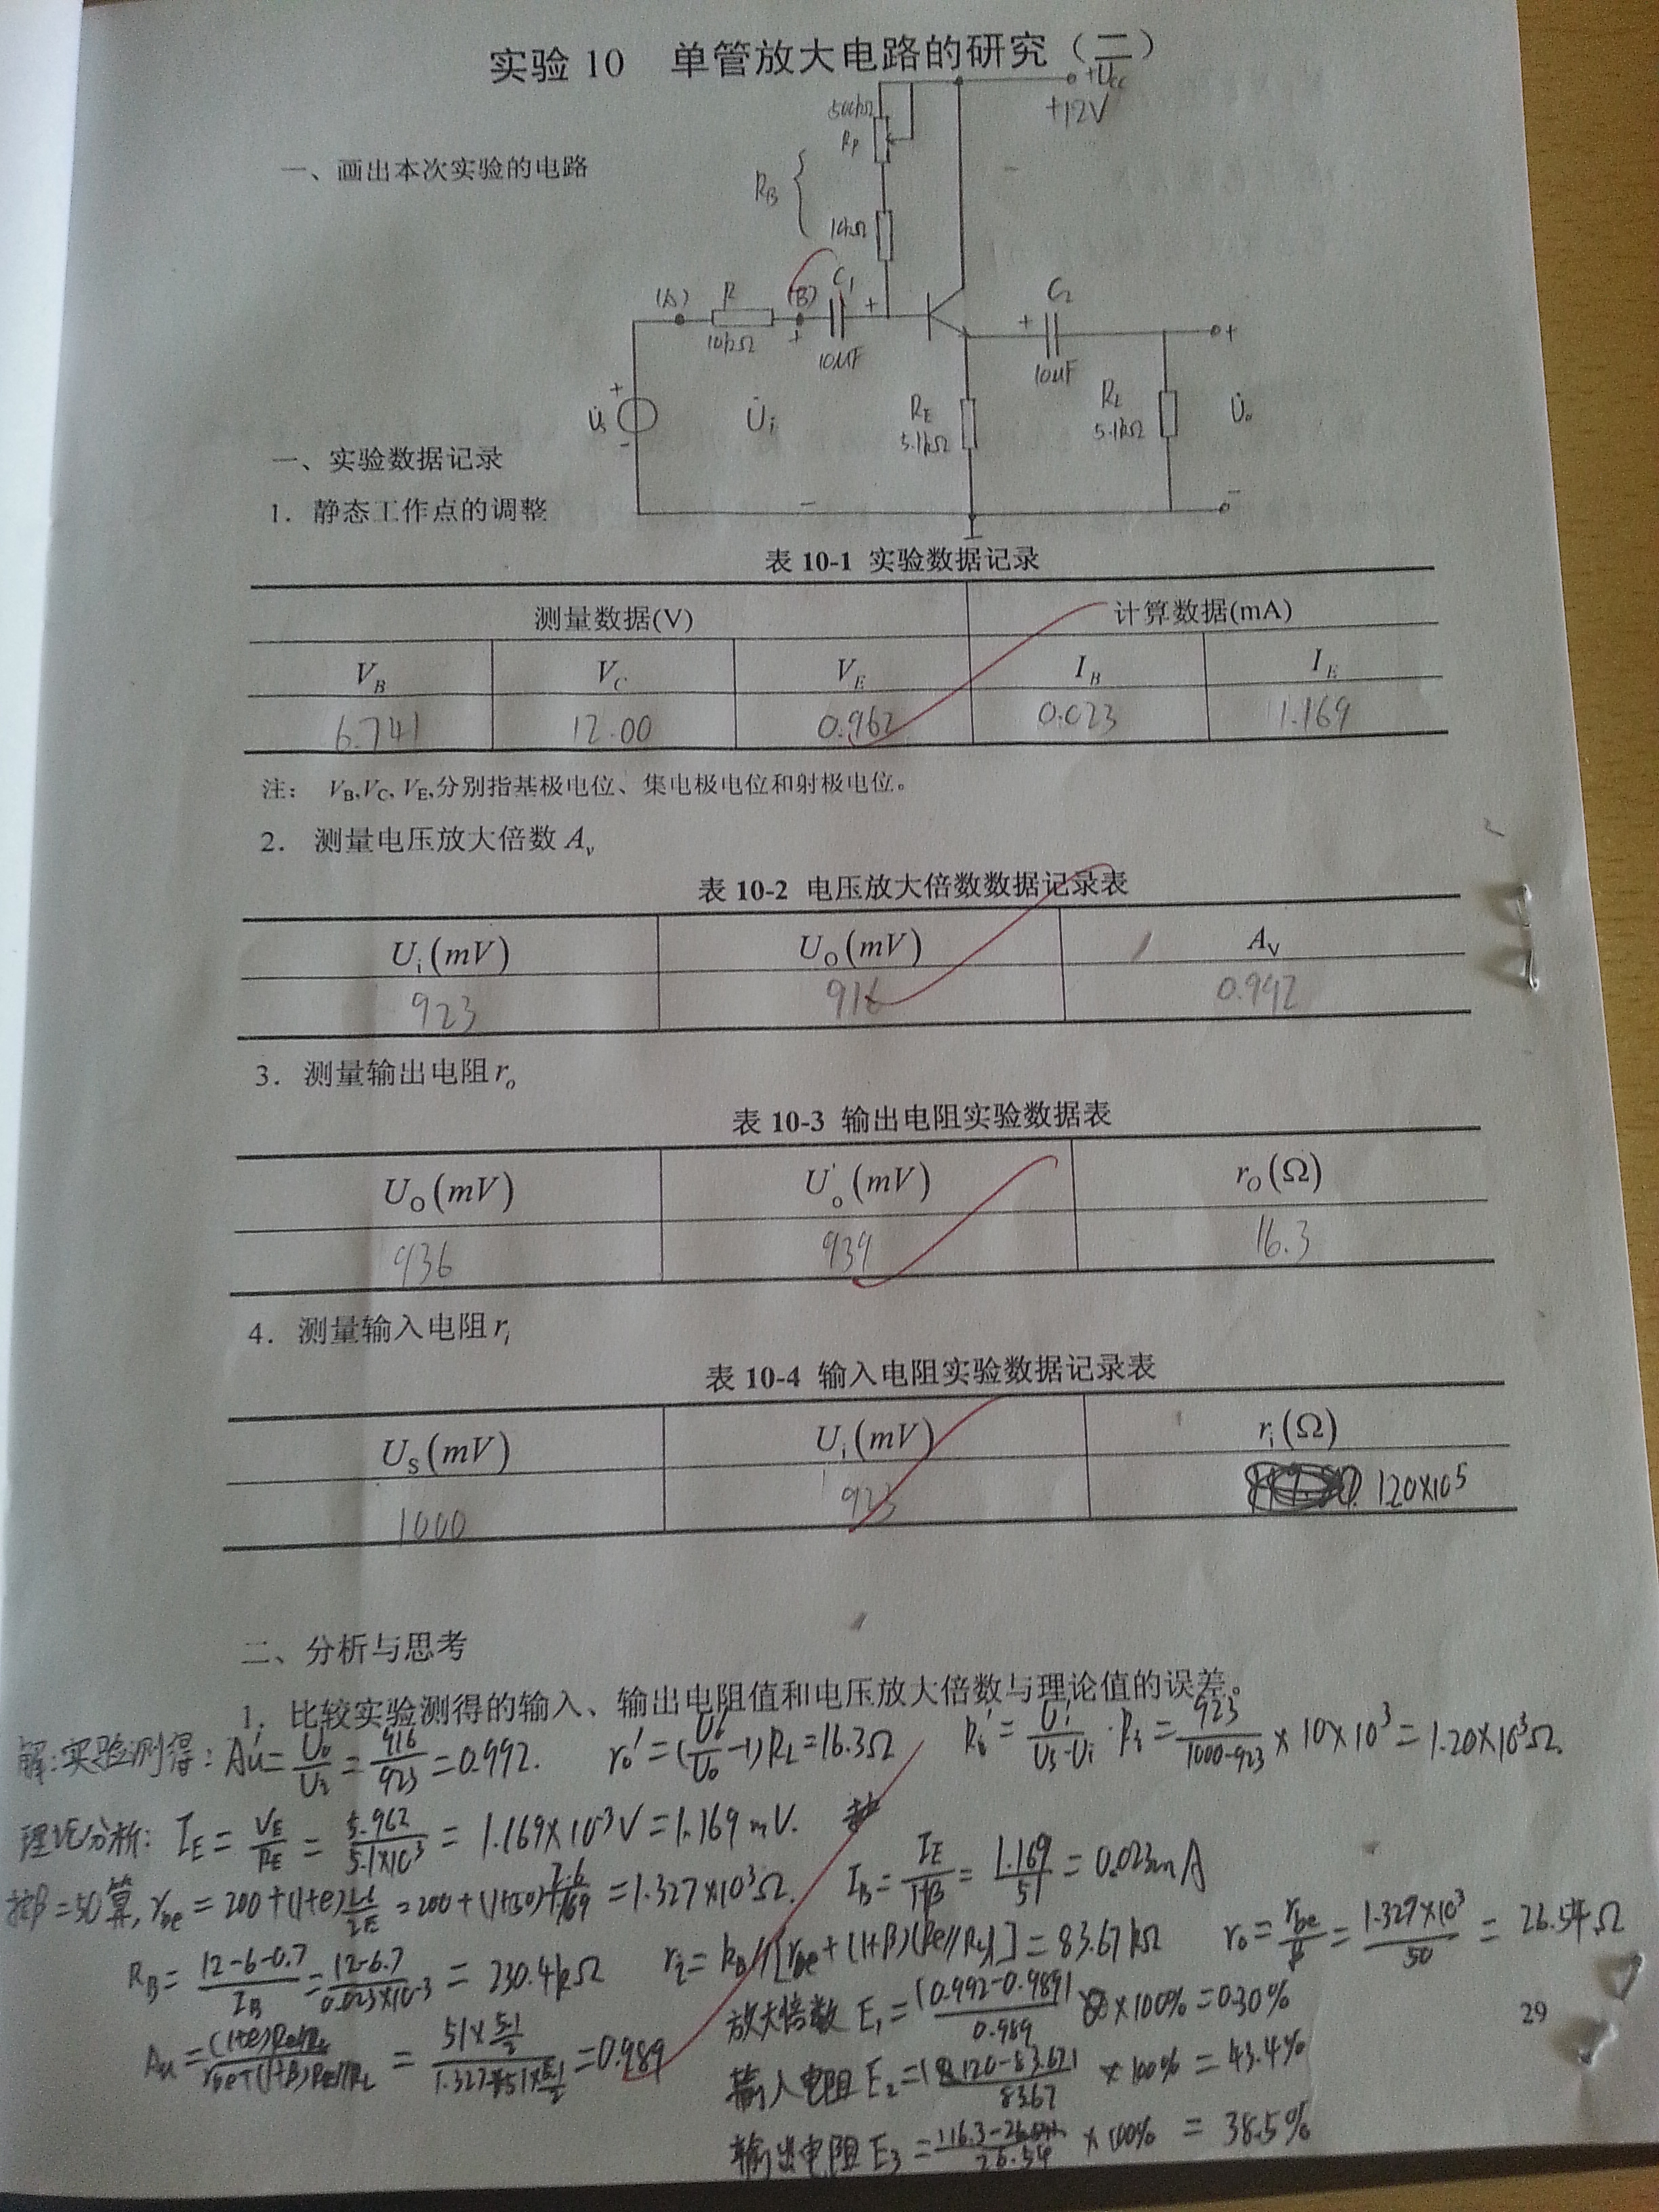 实验 10 单管放大电路的研究（二）
+Ucc
+12V
500kΩ
Rp
一、画出本次实验的电路
RB
10kΩ
(A) R (B) C1 + C2
10kΩ + 10μF + 10μF +
+
U̇s U̇i RE RL U̇o
- 5.1kΩ 5.1kΩ
一、实验数据记录
1. 静态工作点的调整
表 10-1 实验数据记录
测量数据(V) 计算数据(mA)
VB VC VE IB IE
6.741 12.00 0.962 0.023 1.169
注： VB,VC, VE,分别指基极电位、集电极电位和射极电位。
2. 测量电压放大倍数 Av
表 10-2 电压放大倍数数据记录表
Ui(mV) UO(mV) AV
923 916 0.992
3. 测量输出电阻 ro
表 10-3 输出电阻实验数据表
UO(mV) U'o(mV) rO(Ω)
936 939 16.3
4. 测量输入电阻 ri
表 10-4 输入电阻实验数据记录表
US(mV) Ui(mV) ri(Ω)
1000 923 120×10⁵
二、分析与思考
1. 比较实验测得的输入、输出电阻值和电压放大倍数与理论值的误差。
解:实验测得: Au' = Uo/Ui = 916/923 = 0.992. ro' = (Uo'/Uo - 1) RL = 16.3Ω Ri' = Ui/(Us-Ui) · Ri = 923/(1000-923) × 10×10³ = 1.20×10³Ω.
理论分析: IE = VE/RE = 5.962/5.1×10³ = 1.169×10⁻³V = 1.169mV. IB = IE/1+β = 1.169/51 = 0.023mA
按β=50算, rbe = 200+(1+β)26/IE = 200+(1+50)26/1.169 = 1.327×10³Ω.
RB = 12-6-0.7/IB = 12-6.7/0.023×10⁻³ = 230.4kΩ ri = RB//[rbe+(1+β)(Re//RL)] = 83.67kΩ ro = rbe/β = 1.327×10³/50 = 26.54Ω
放大倍数 E1 = |0.992-0.989|/0.989 ×100% = 0.30%
29
Au = (1+β)Re//RL/rbe+(1+β)Re//RL = 51×5.1/2/1.327+51×5.1/2 = 0.989
输入电阻 E2 = |120-83.67|/83.67 ×100% = 43.4%
输出电阻 E3 = |16.3-26.54|/26.54 ×100% = 38.5%